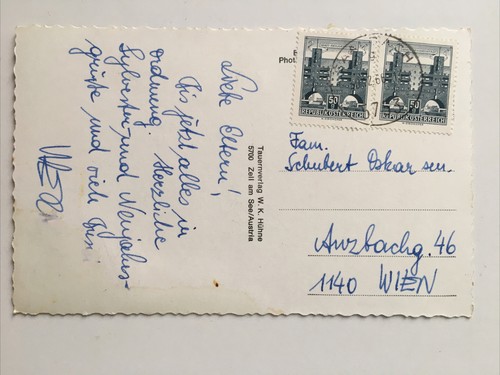 Liebe Eltern!
Bis jetzt alles in
ordnung. Herzliche
Sylvester- und Neujahrs-
grüße und viel
Tauernverlag W. K. Hühne
5700 Zell am See/Austria
Phot
50 50
REPUBLIK ÖSTERREICH REPUBLIK ÖSTERREICH
Fam.
Schubert Oskar sen.
Anzbachg. 46
1140 WIEN